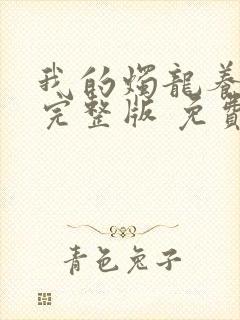 我的燭龍養
完整版 免費
青色兔子